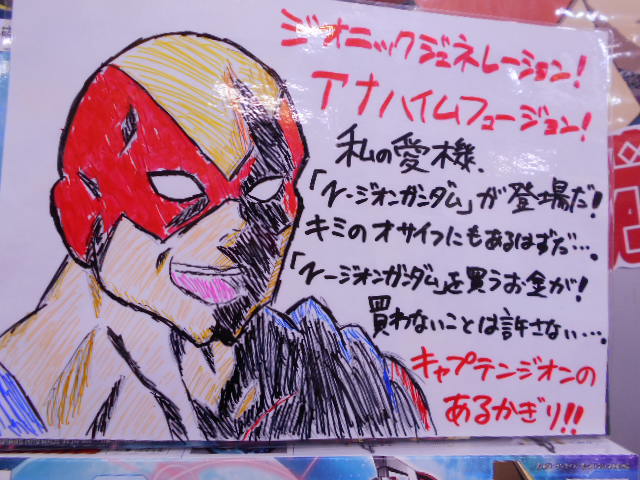 ジオニックジェネレーション!
アナハイムフュージョン!
私の愛機、
「ν-ジオンガンダム」が登場だ!
キミのオサイフにもあるはずだ…。
「ν-ジオンガンダム」を買うお金が!
買わないことは許さない…。
キャプテンジオンの
あるかぎり!!